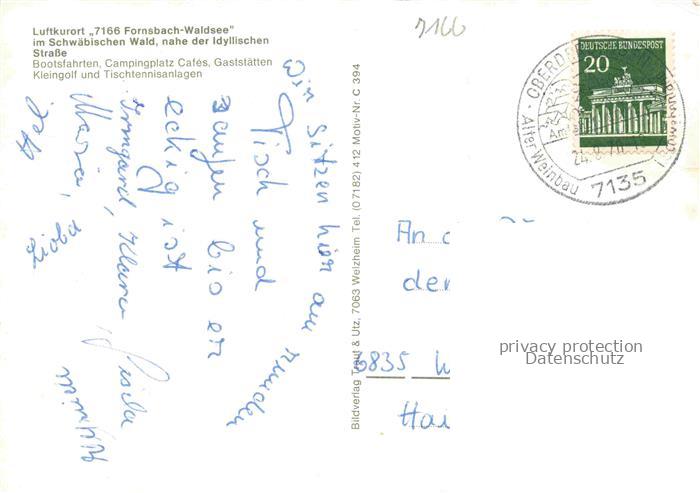 Luftkurort „7166 Fornsbach-Waldsee"
im Schwäbischen Wald, nahe der Idyllischen
Straße
Bootsfahrten, Campingplatz Cafés, Gaststätten
Kleingolf und Tischtennisanlagen
7166
DEUTSCHE BUNDESPOST
20
Alter Weinbau
7135
Wir sitzen hier am runden
Tisch und
saufen bis er
eckig ist
Irmgard, Klara, Gisela
Maria,
Bildverlag Traut & Utz, 7063 Welzheim Tel. (07182) 412 Motiv-Nr. C 394
An
der
6835
privacy protection
Datenschutz